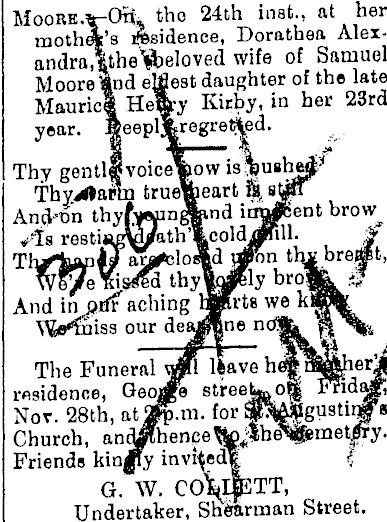 MOORE.—On the 24th inst., at her
mother's residence, Dorathea Alex-
andra, the beloved wife of Samuel
Moore and eldest daughter of the late
Maurice Henry Kirby, in her 23rd
year. Deeply regretted.
Thy gentle voice now is hushed
Thy warm true heart is still
And on thy young and innocent brow
Is resting death's cold chill.
Thy hands are closed upon thy breast,
We've kissed thy lovely brow
And in our aching hearts we know
We miss our dear one now.
306
The Funeral will leave her mother's
residence, George street, on Friday,
Nov. 28th, at 2 p.m. for St. Augustine's
Church, and thence to the cemetery.
Friends kindly invited
G. W. COLLETT,
Undertaker, Shearman Street.